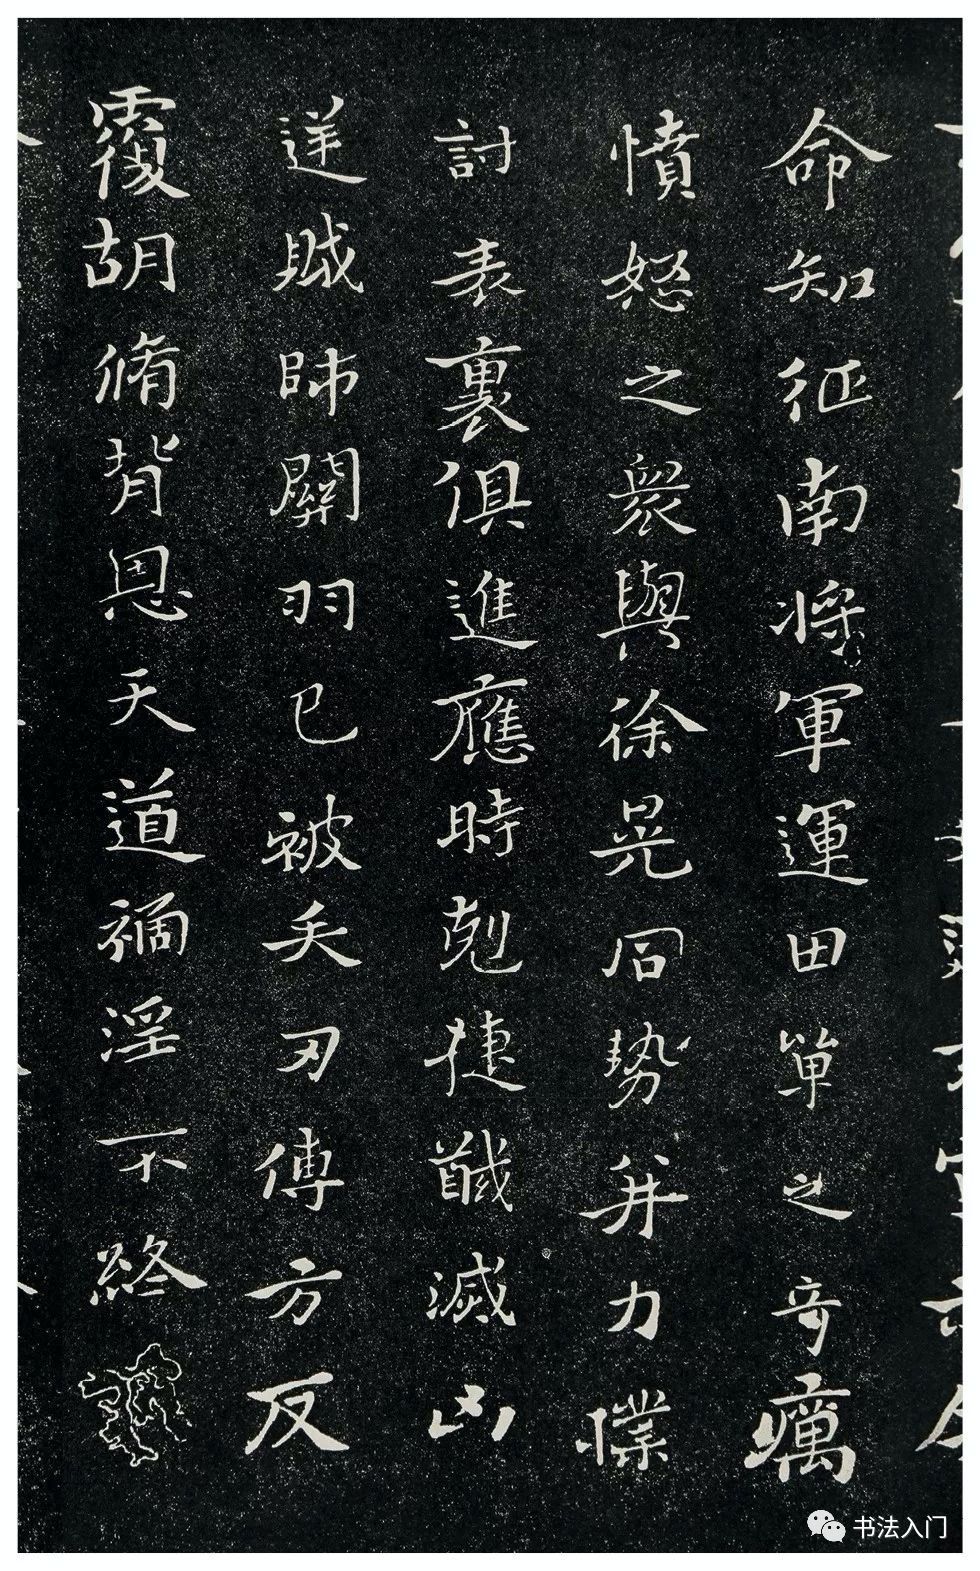 命知征南將軍運田單之奇癘
憤怒之衆與徐晃同勢并力㩧
討表裏俱進應時剋捷馘滅凶
逆賊帥關羽已被矢刃傅方反
覆胡脩背恩天道禍淫不終
书法入门